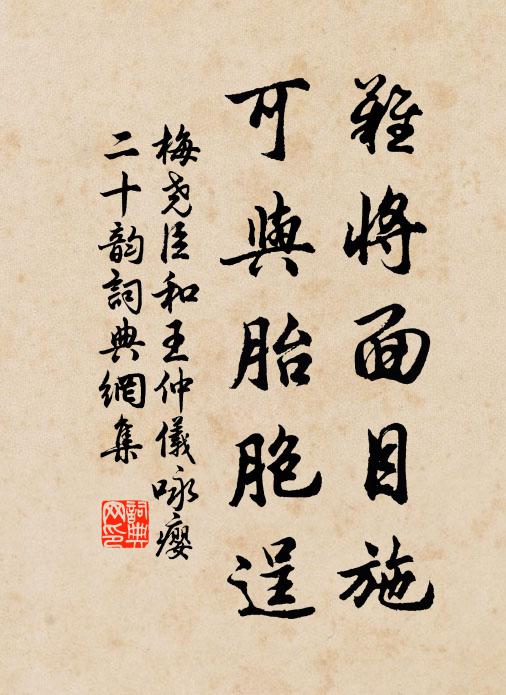 難將面目施
可與胎胞逞
梅堯臣和王仲儀咏瘿
二十韵詞典網集
詞典网印